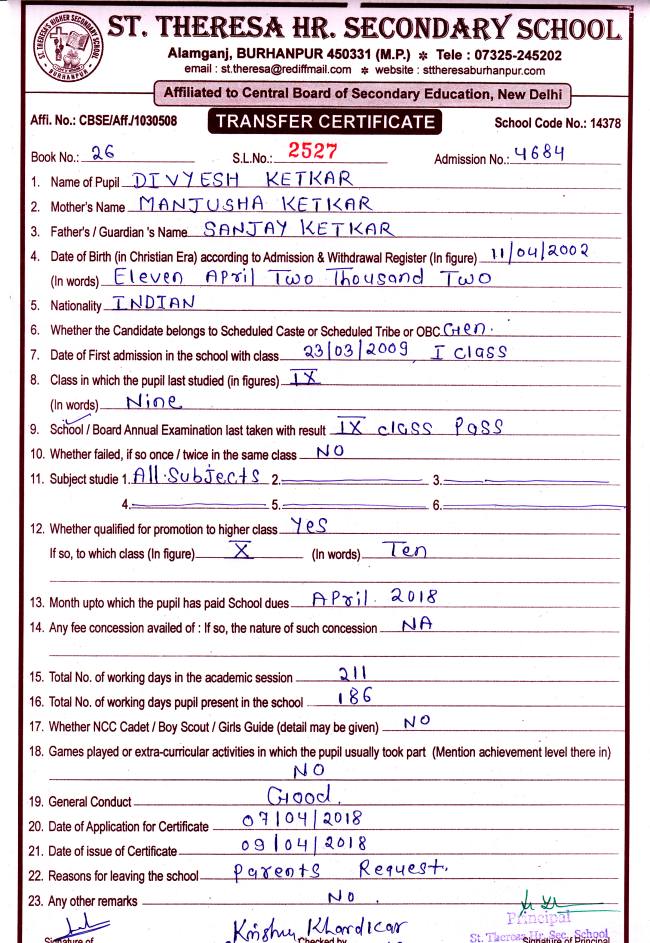 ST. THERESA HR. SECONDARY SCHOOL
Alamganj, BURHANPUR 450331 (M.P.) ✻ Tele : 07325-245202
email : st.theresa@rediffmail.com ✻ website : sttheresaburhanpur.com
Affiliated to Central Board of Secondary Education, New Delhi
Affi. No.: CBSE/Aff./1030508 TRANSFER CERTIFICATE School Code No.: 14378
Book No.: 26 S.L.No.: 2527 Admission No.: 4684
1. Name of Pupil DIVYESH KETKAR
2. Mother's Name MANJUSHA KETKAR
3. Father's / Guardian 's Name SANJAY KETKAR
4. Date of Birth (in Christian Era) according to Admission & Withdrawal Register (In figure) 11/04/2002
(In words) Eleven April Two Thousand Two
5. Nationality INDIAN
6. Whether the Candidate belongs to Scheduled Caste or Scheduled Tribe or OBC Gen.
7. Date of First admission in the school with class 23/03/2009, I class
8. Class in which the pupil last studied (in figures) IX
(In words) Nine
9. School / Board Annual Examination last taken with result IX class Pass
10. Whether failed, if so once / twice in the same class NO
11. Subject studie 1. All Subjects 2. 3.
4. 5. 6.
12. Whether qualified for promotion to higher class Yes
If so, to which class (In figure) X (In words) Ten
13. Month upto which the pupil has paid School dues April 2018
14. Any fee concession availed of : If so, the nature of such concession NA
15. Total No. of working days in the academic session 211
16. Total No. of working days pupil present in the school 186
17. Whether NCC Cadet / Boy Scout / Girls Guide (detail may be given) NO
18. Games played or extra-curricular activities in which the pupil usually took part (Mention achievement level there in)
NO
19. General Conduct Good.
20. Date of Application for Certificate 07/04/2018
21. Date of issue of Certificate 09/04/2018
22. Reasons for leaving the school Parents Request.
23. Any other remarks No.
Principal
St. Theresa Hr. Sec. School
Signature of Checked by Signature of Principal